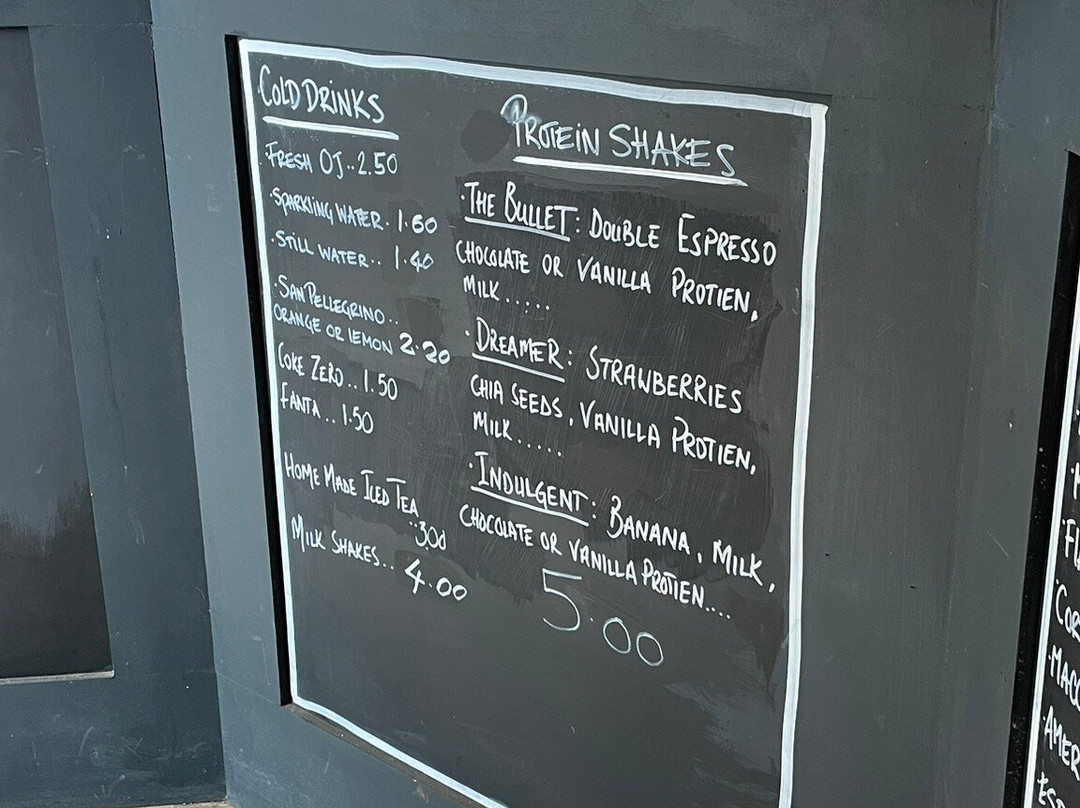 COLD DRINKS
FRESH OJ..2.50
·SPARKLING WATER. 1.60
·STILL WATER.. 1.40
·SAN PELLEGRINO..
ORANGE OR LEMON 2.20
COKE ZERO..1.50
FANTA...1.50
HOME MADE ICED TEA
..3.00
MILK SHAKES.. 4.00
PROTEIN SHAKES
·THE BULLET: DOUBLE ESPRESSO
CHOCOLATE OR VANILLA PROTIEN,
MILK.....
·DREAMER: STRAWBERRIES
CHIA SEEDS, VANILLA PROTIEN,
MILK.....
·INDULGENT: BANANA, MILK,
CHOCOLATE OR VANILLA PROTIEN....
5.00